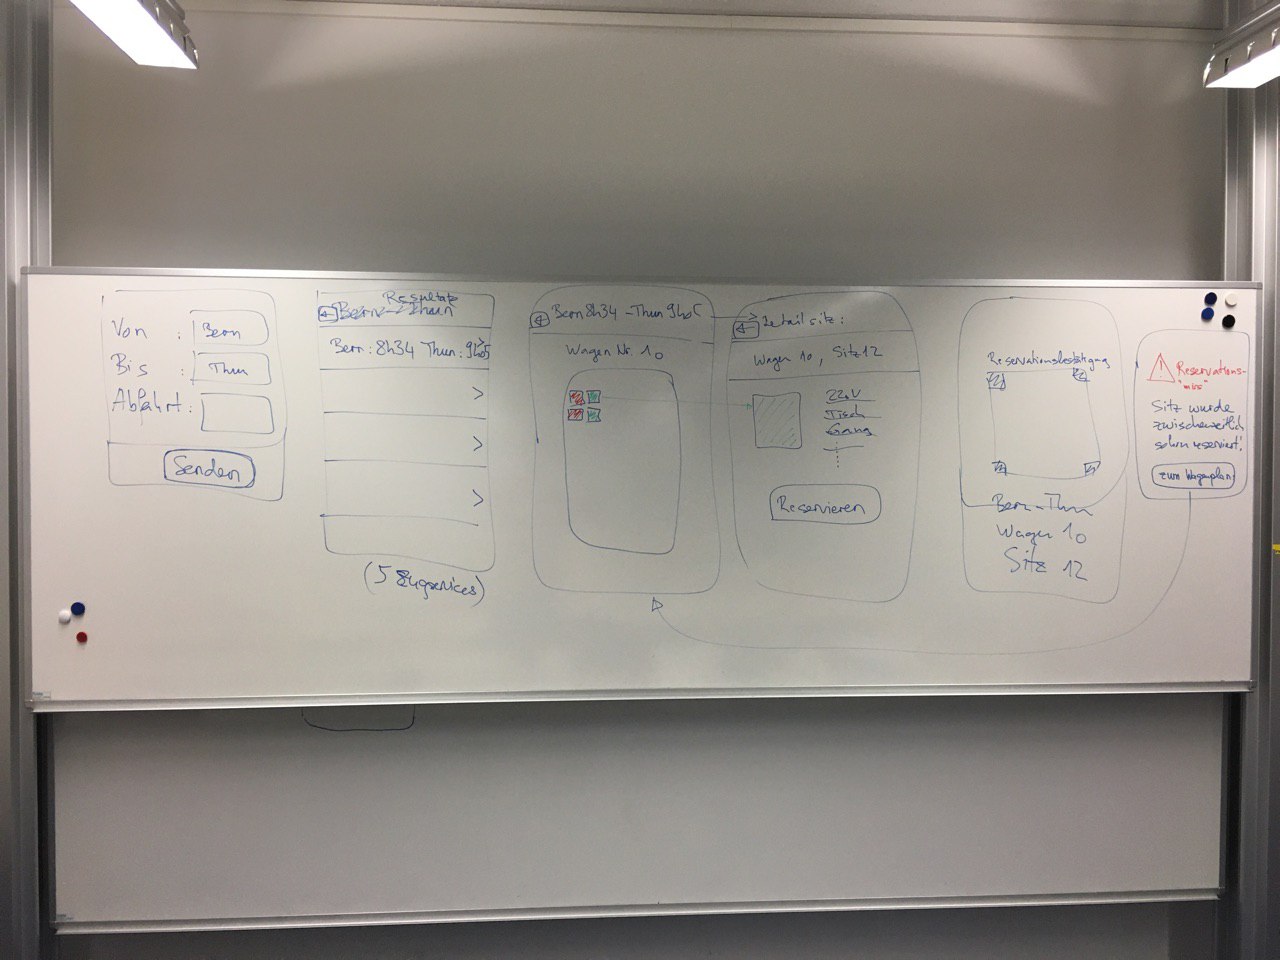 Von : Bern
Bis : Thun
Abfahrt:
Senden
Resultate
Bern - Thun
Bern: 8h34 Thun: 9h05
(5 Zugservices)
Bern 8h34 - Thun 9h05
Wagen Nr. 10
Detail sitz:
Wagen 10, Sitz 12
220V
Tisch
Gang
Reservieren
Reservationsbestätigung
Bern - Thun
Wagen 10
Sitz 12
Reservations-
Sitz wurde
zwischenzeitlich
schon reserviert!
zum Wagenplan